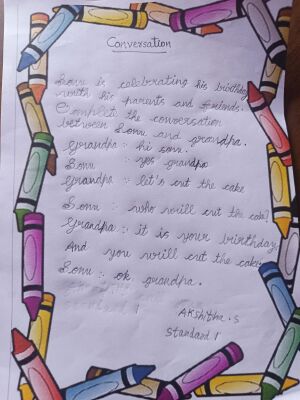 Conversation
Sonu is celebrating his birthday
with his parents and friends.
Complete the conversation
between Sonu and grandpa.
Grandpa :- hi sonu.
Sonu :- yes grandpa
Grandpa :- let's cut the cake
Sonu :- who will cut the cake?
Grandpa :- it is your birthday
And you will cut the cake
Sonu :- ok grandpa.
Akshitha . S
Standard 1